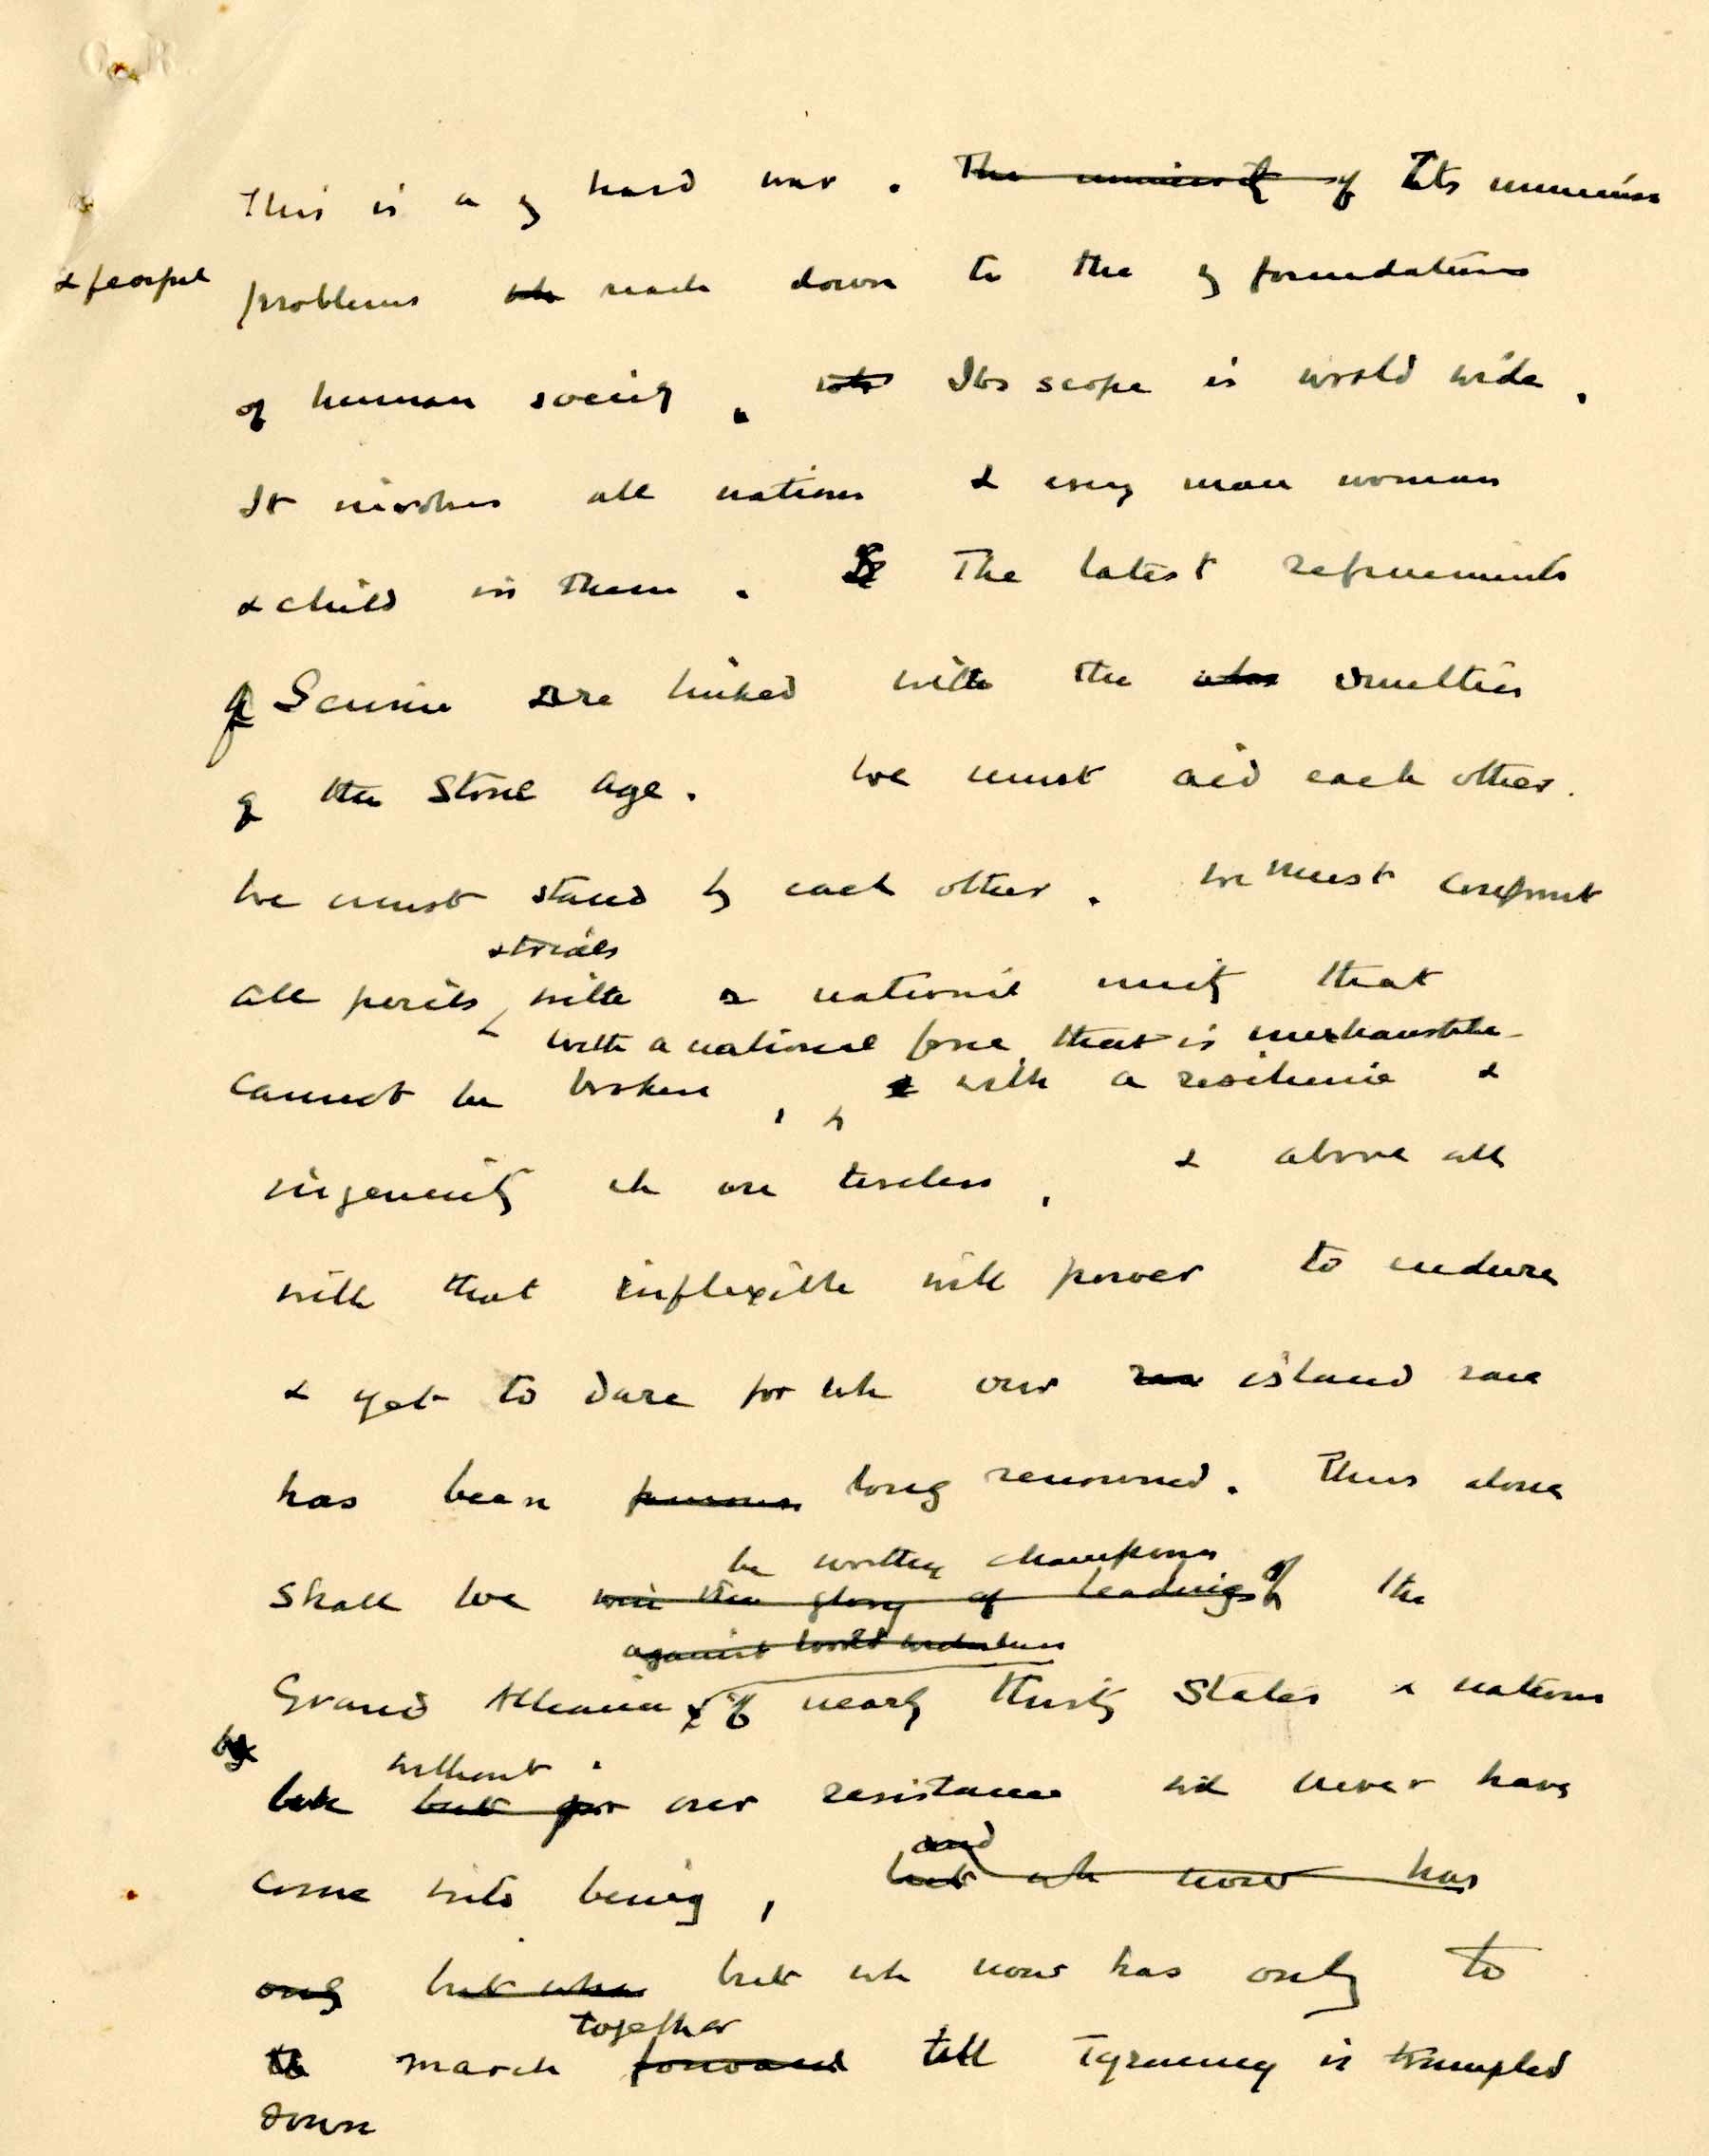 This is a vy hard war. The immensity of Its numerous
& fearful problems wh reach down to the vy foundations
of human society. Its scope is world wide.
It involves all nations & every man woman
& child in them. The latest refinements
of Science are linked with the cruelties
of the Stone Age. We must aid each other.
We must stand by each other. We must confront
& trials
all perils with a national unity that
with a national force that is inexhaustible
cannot be broken, & with a resilience &
ingenuity wh are tireless, & above all
with that inflexible will power to endure
& yet to dare for wh our race island race
has been famous long renowned. Thus alone
be worthy champions
shall we win the glory of leading of the
against world
Grand Alliance of nearly thirty States & nations
without
wh but for our resistance wd never have
and
come into being, but wh now has
only but when but wh now has only to
together
to march forward till Tyranny is trampled
down